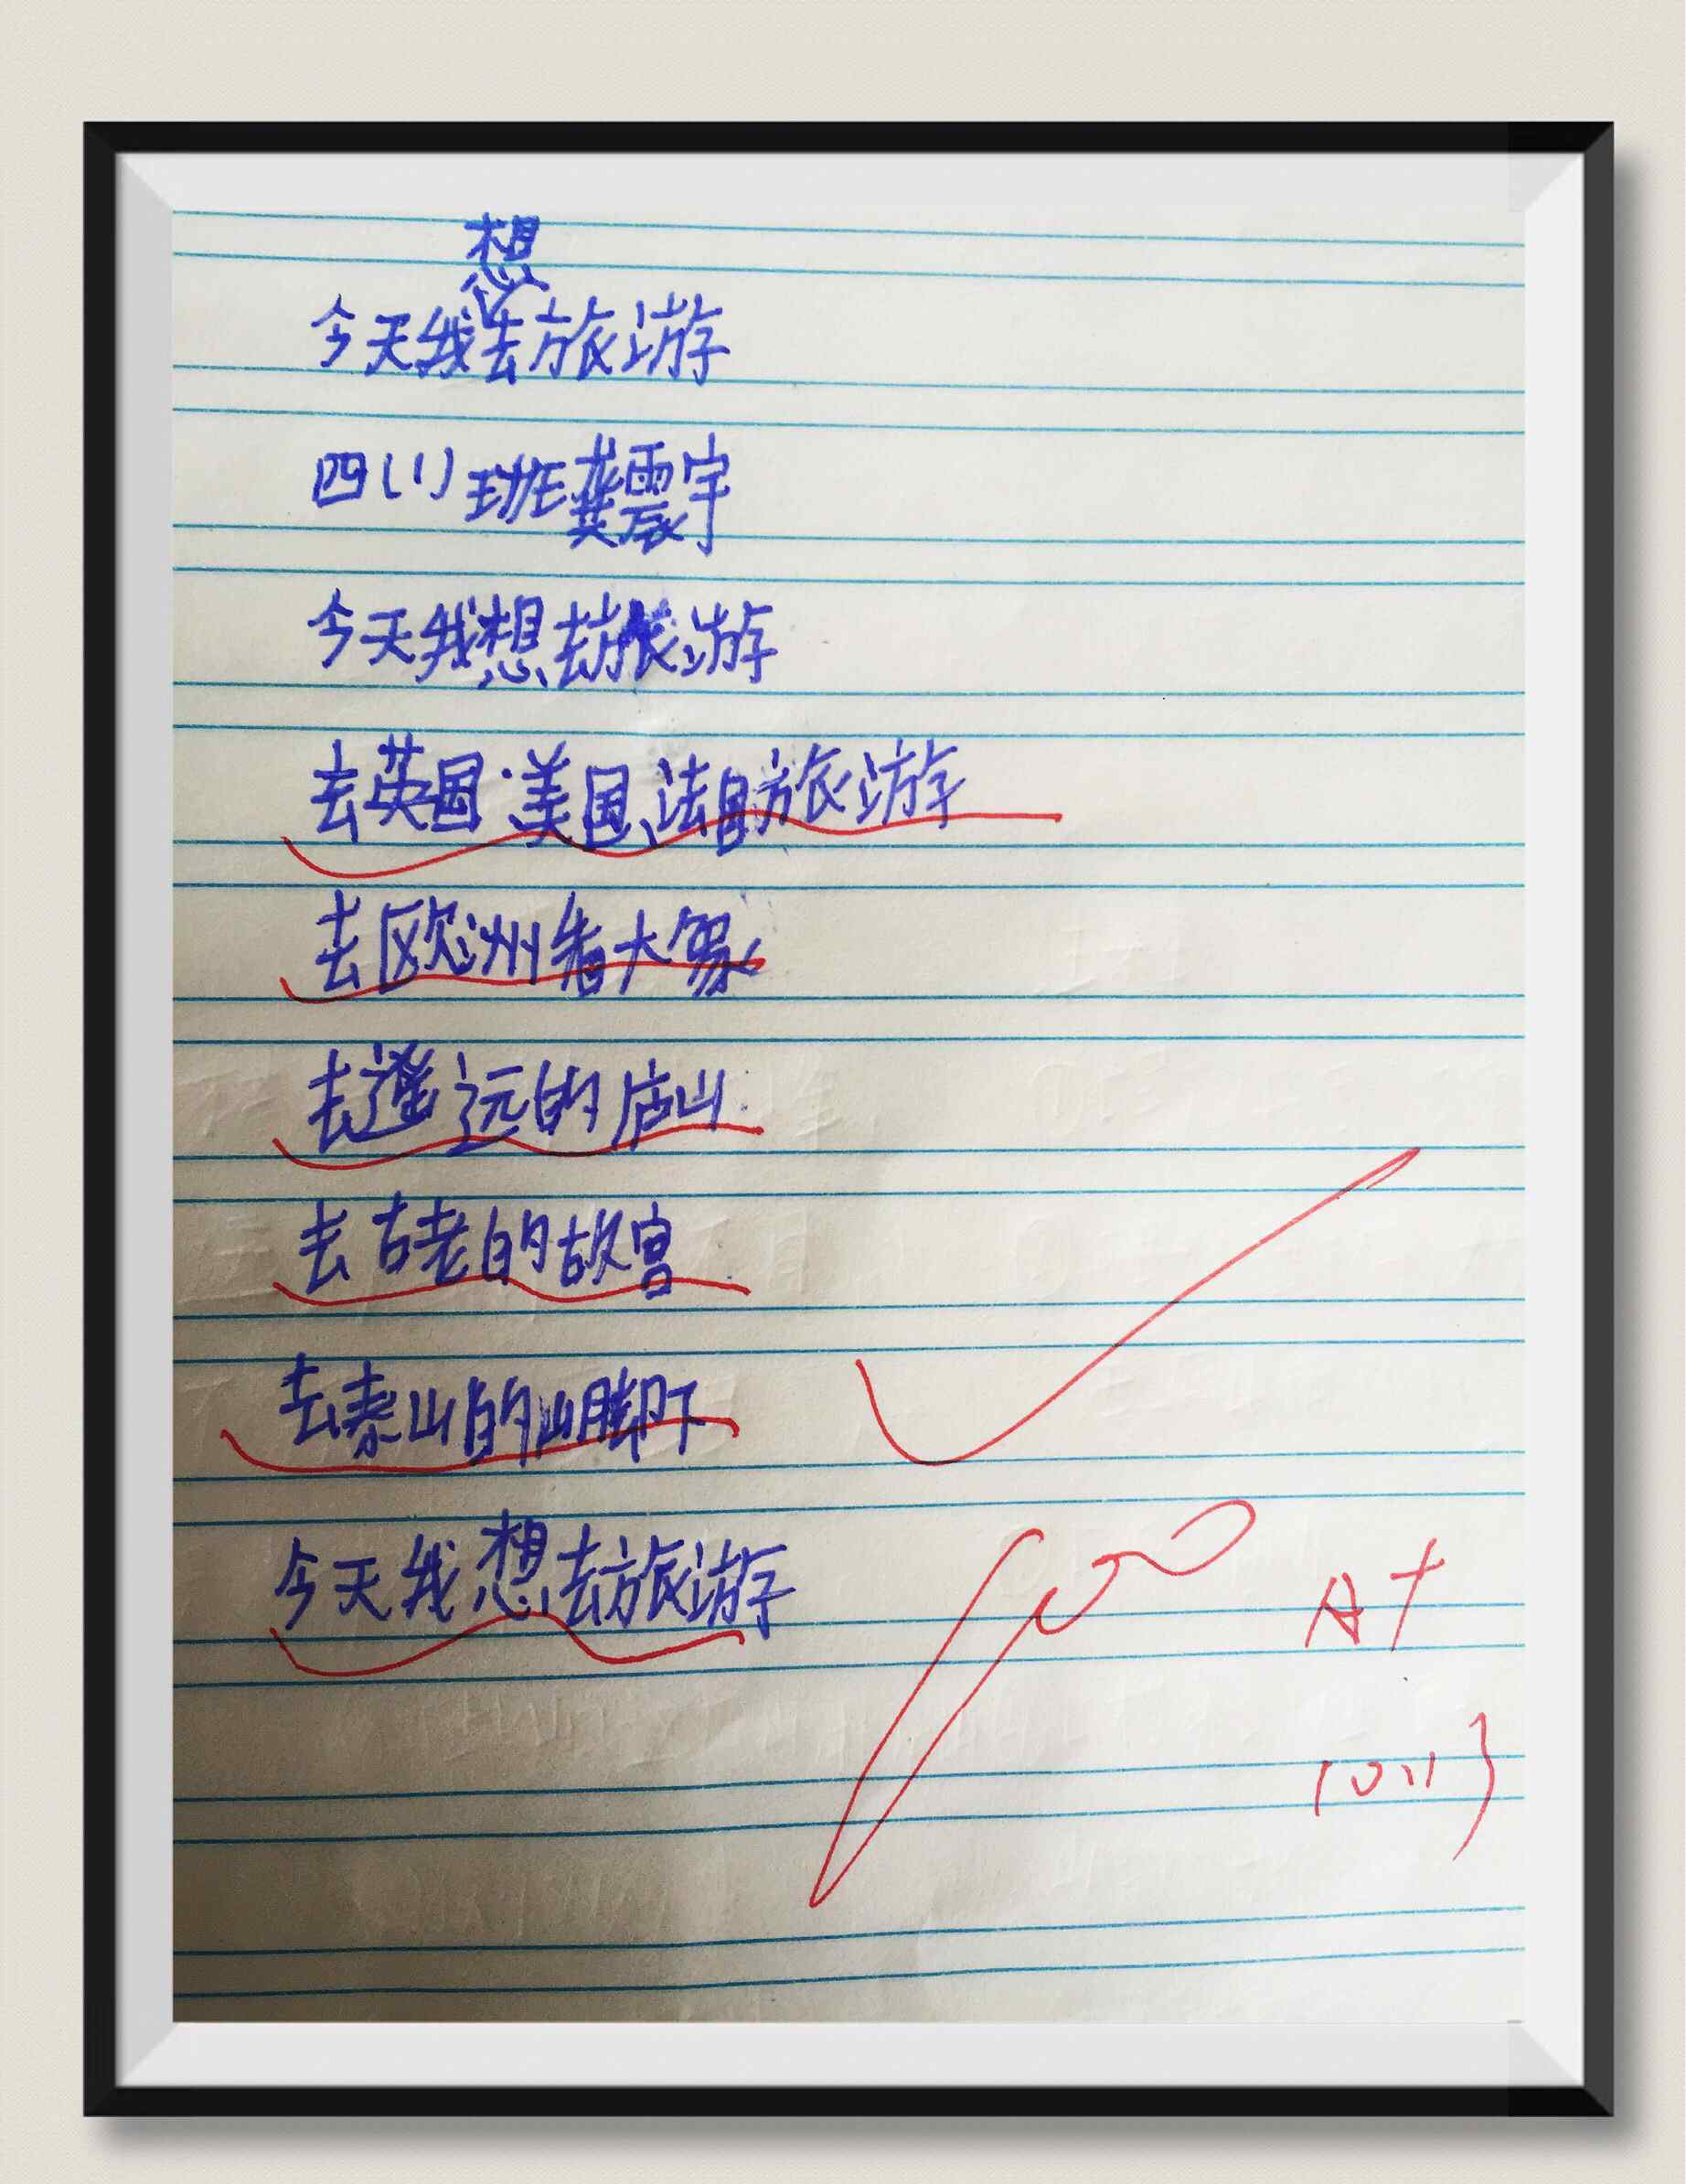 今天我想去旅游
四(1)班龚震宇
今天我想去旅游
去英国、美国、法国旅游
去欧洲看大象
去遥远的庐山
去古老的故宫
去泰山的山脚下
今天我想去旅游
A+